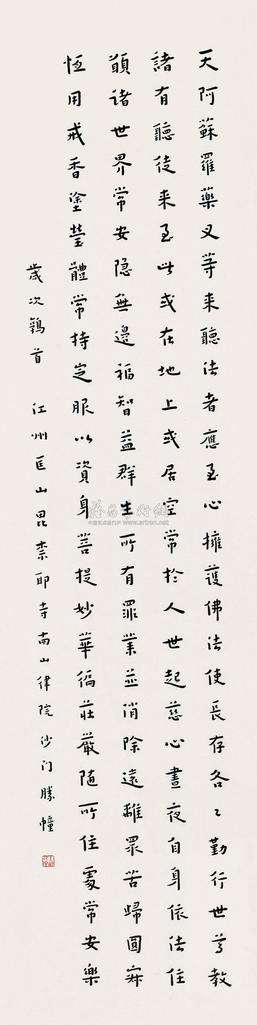 天阿蘇羅藥叉等来聽法者應至心擁護佛法使長存各〻勤行世尊教
諸有聽徒来至此或在地上或居空常於人世起慈心晝夜自身依法住
願诸世界常安隐無邊福智益群生所有罪業並消除遠離眾苦歸圓寂
恆用戒香塗瑩體常持定服以資身菩提妙華徧莊嚴随所住處常安樂
歲次鶉首 江州匡山毘柰耶寺南山律院沙门勝幢
www.artron.net